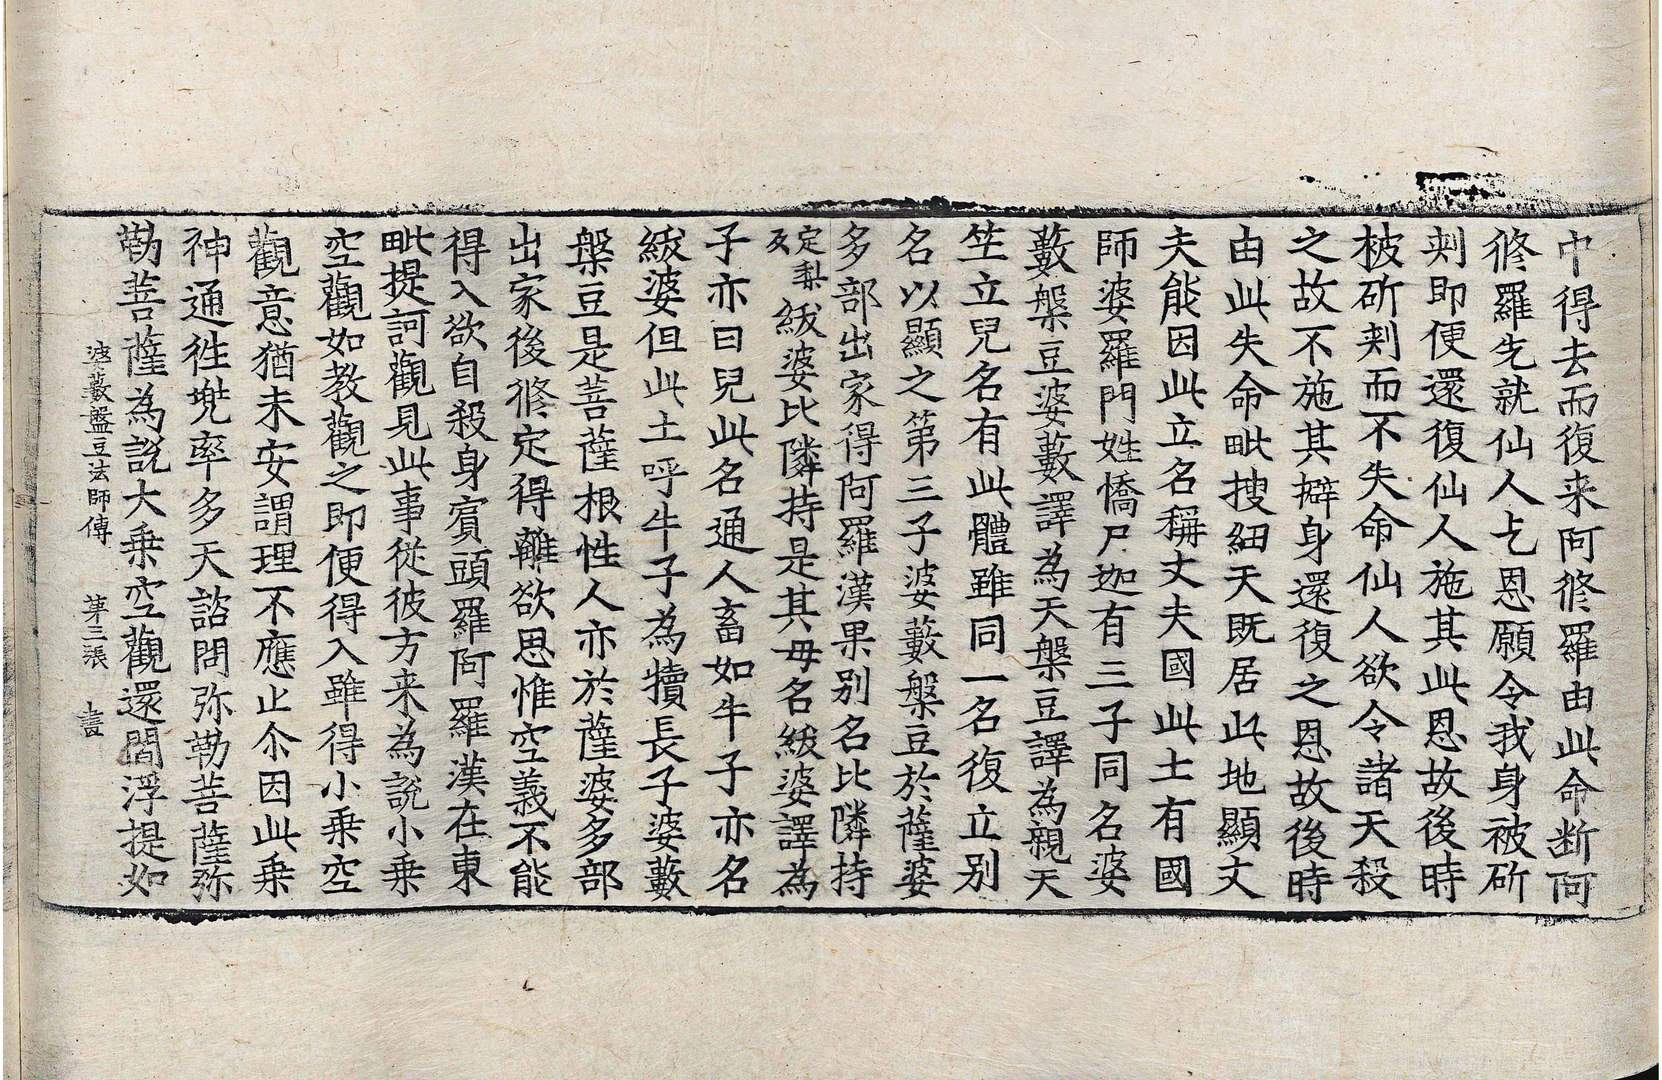 中得去而復来阿修羅由此命断阿
修羅先就仙人乞恩願令我身被斫
刾即便還復仙人施其此恩故後時
被斫刾而不失命仙人欲令諸天殺
之故不施其擗身還復之恩故後時
由此失命毗搜紐天既居此地顯丈
夫能因此立名稱丈夫國此土有國
師婆羅門姓憍尸迦有三子同名婆
藪槃豆婆藪譯為天槃豆譯為親天
竺立兒名有此體雖同一名復立別
名以顯之第三子婆藪槃豆於薩婆
多部出家得阿羅漢果別名比隣持
定梨反紱婆比隣持是其母名紱婆譯為
子亦曰兒此名通人畜如牛子亦名
紱婆但此土呼牛子為犢長子婆藪
槃豆是菩薩根性人亦於薩婆多部
出家後修定得離欲思惟空義不能
得入欲自殺身賓頭羅阿羅漢在東
毗提訶觀見此事從彼方来為說小乗
空觀如教觀之即便得入雖得小乗空
觀意猶未安謂理不應止尒因此乗
神通徃兠率多天諮問弥勒菩薩弥
勒菩薩為說大乗空觀還閻浮提如
婆藪盤豆法師傳 第三張 書